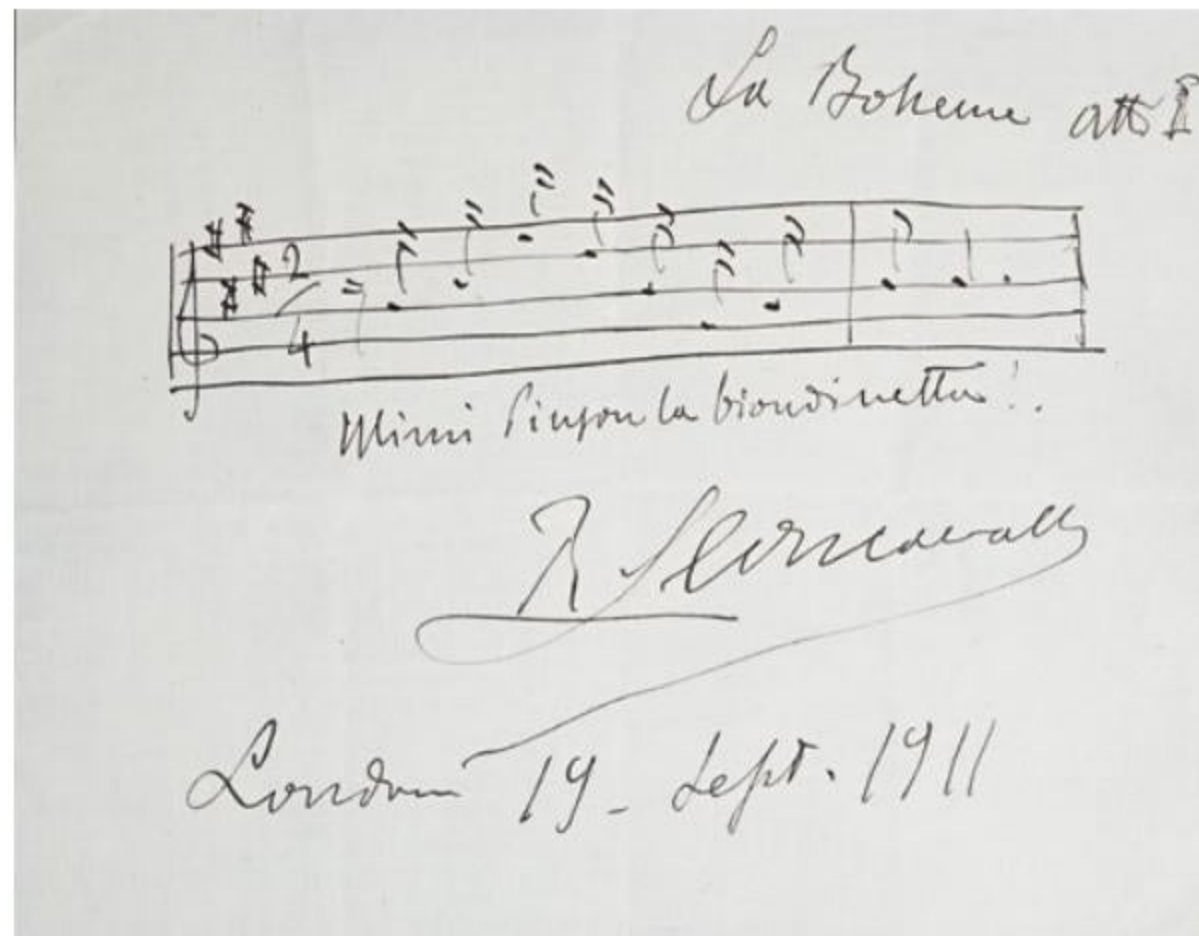 La Boheme atto I
2
4
Mimi Pinson la biondinetta!.
R Leoncavallo
London 19 - Sept. 1911